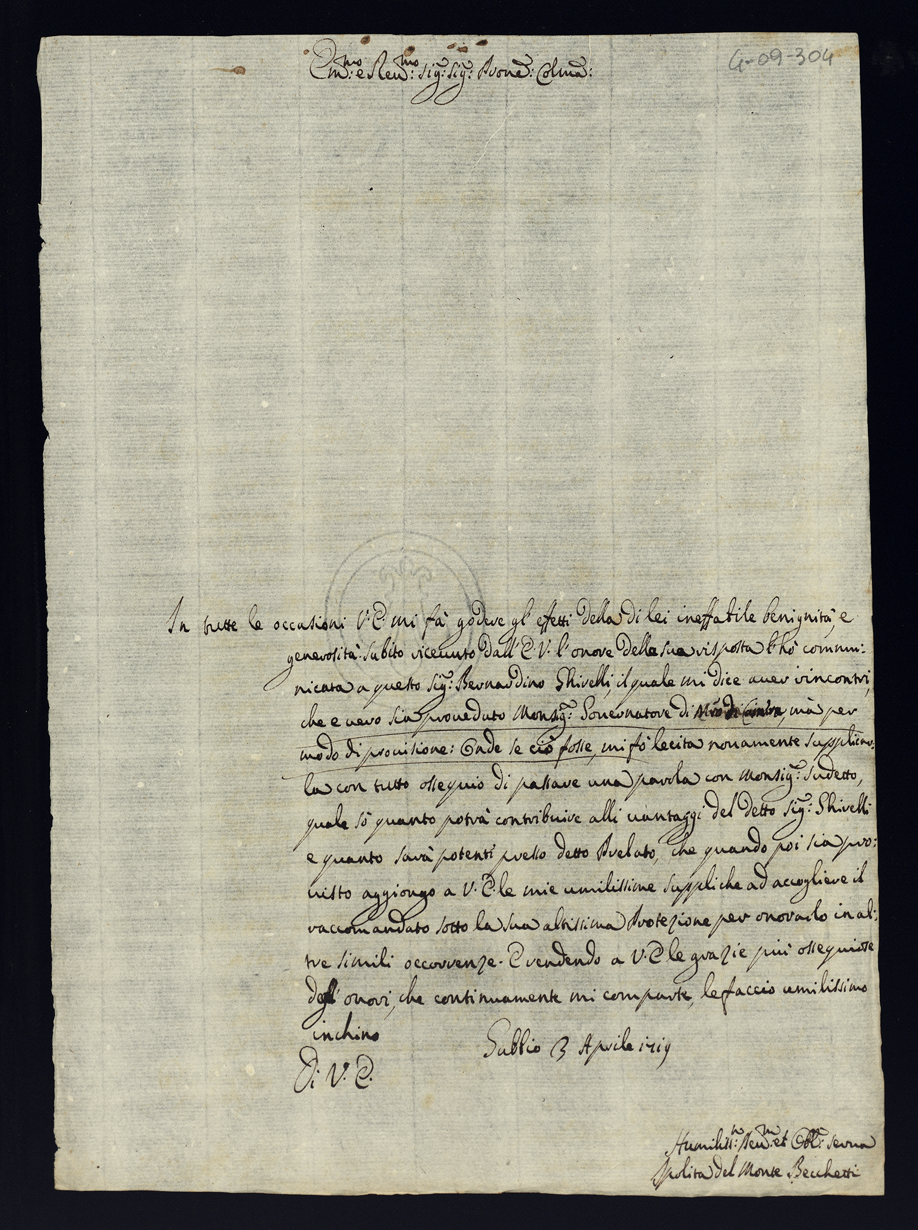 G-09-304
Em.mo: e Reu.mo: Sig.r: Sig.r: Prone: Colmo:
In tutte le occasioni V: E: mi fà godere gl'effetti della di lei ineffabile benignità, e
generosità. Subito riceuuto dall'E: V: l'onore della sua risposta l'hò commu:
nicata a questo Sig.r: Bernardino Ghirelli, il quale mi dice auer rincontri,
che e uero sia proueduto Monsig.r: Gouernatore di, mà per
modo di prouisione: Onde se ciò fosse, mi fò lecita nouamente supplicar:
la con tutto ossequio di passare una parola con Monsig.r: sudetto,
quale sò quanto potrà contribuire alli uantaggi del detto Sig.r: Ghirelli
e quanto sarà potenti presso detto Prelato, che quando poi sia pro:
uisto aggiongo a V: E: le mie umilissime suppliche ad accogliere il
raccomandato sotto la sua altissima Protezione per onorarlo in al:
tre simili occorrenze. E rendendo a V: E: le grazie più ossequiose
degl'onori, che continuamente mi comparte, le faccio umilissimo
inchino
Gubbio 3 Aprile 1719
Di V: E:
Humiliss: Reu: et Obl: Serua
Ipolita del Monte Becchetti